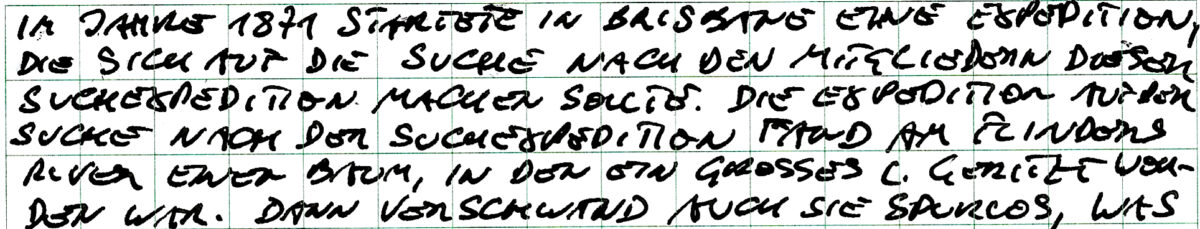 IM JAHRE 1871 STARTETE IN BRISBANE EINE EXPEDITION,
DIE SICH AUF DIE SUCHE NACH DEN MITGLIEDERN DIESER
SUCHEXPEDITION MACHEN SOLLTE. DIE EXPEDITION AUF DER
SUCHE NACH DER SUCHEXPEDITION FAND AM FLINDERS
RIVER EINEN BAUM, IN DEN EIN GROSSES L GERITZT WOR-
DEN WAR. DANN VERSCHWAND AUCH SIE SPURLOS, WAS